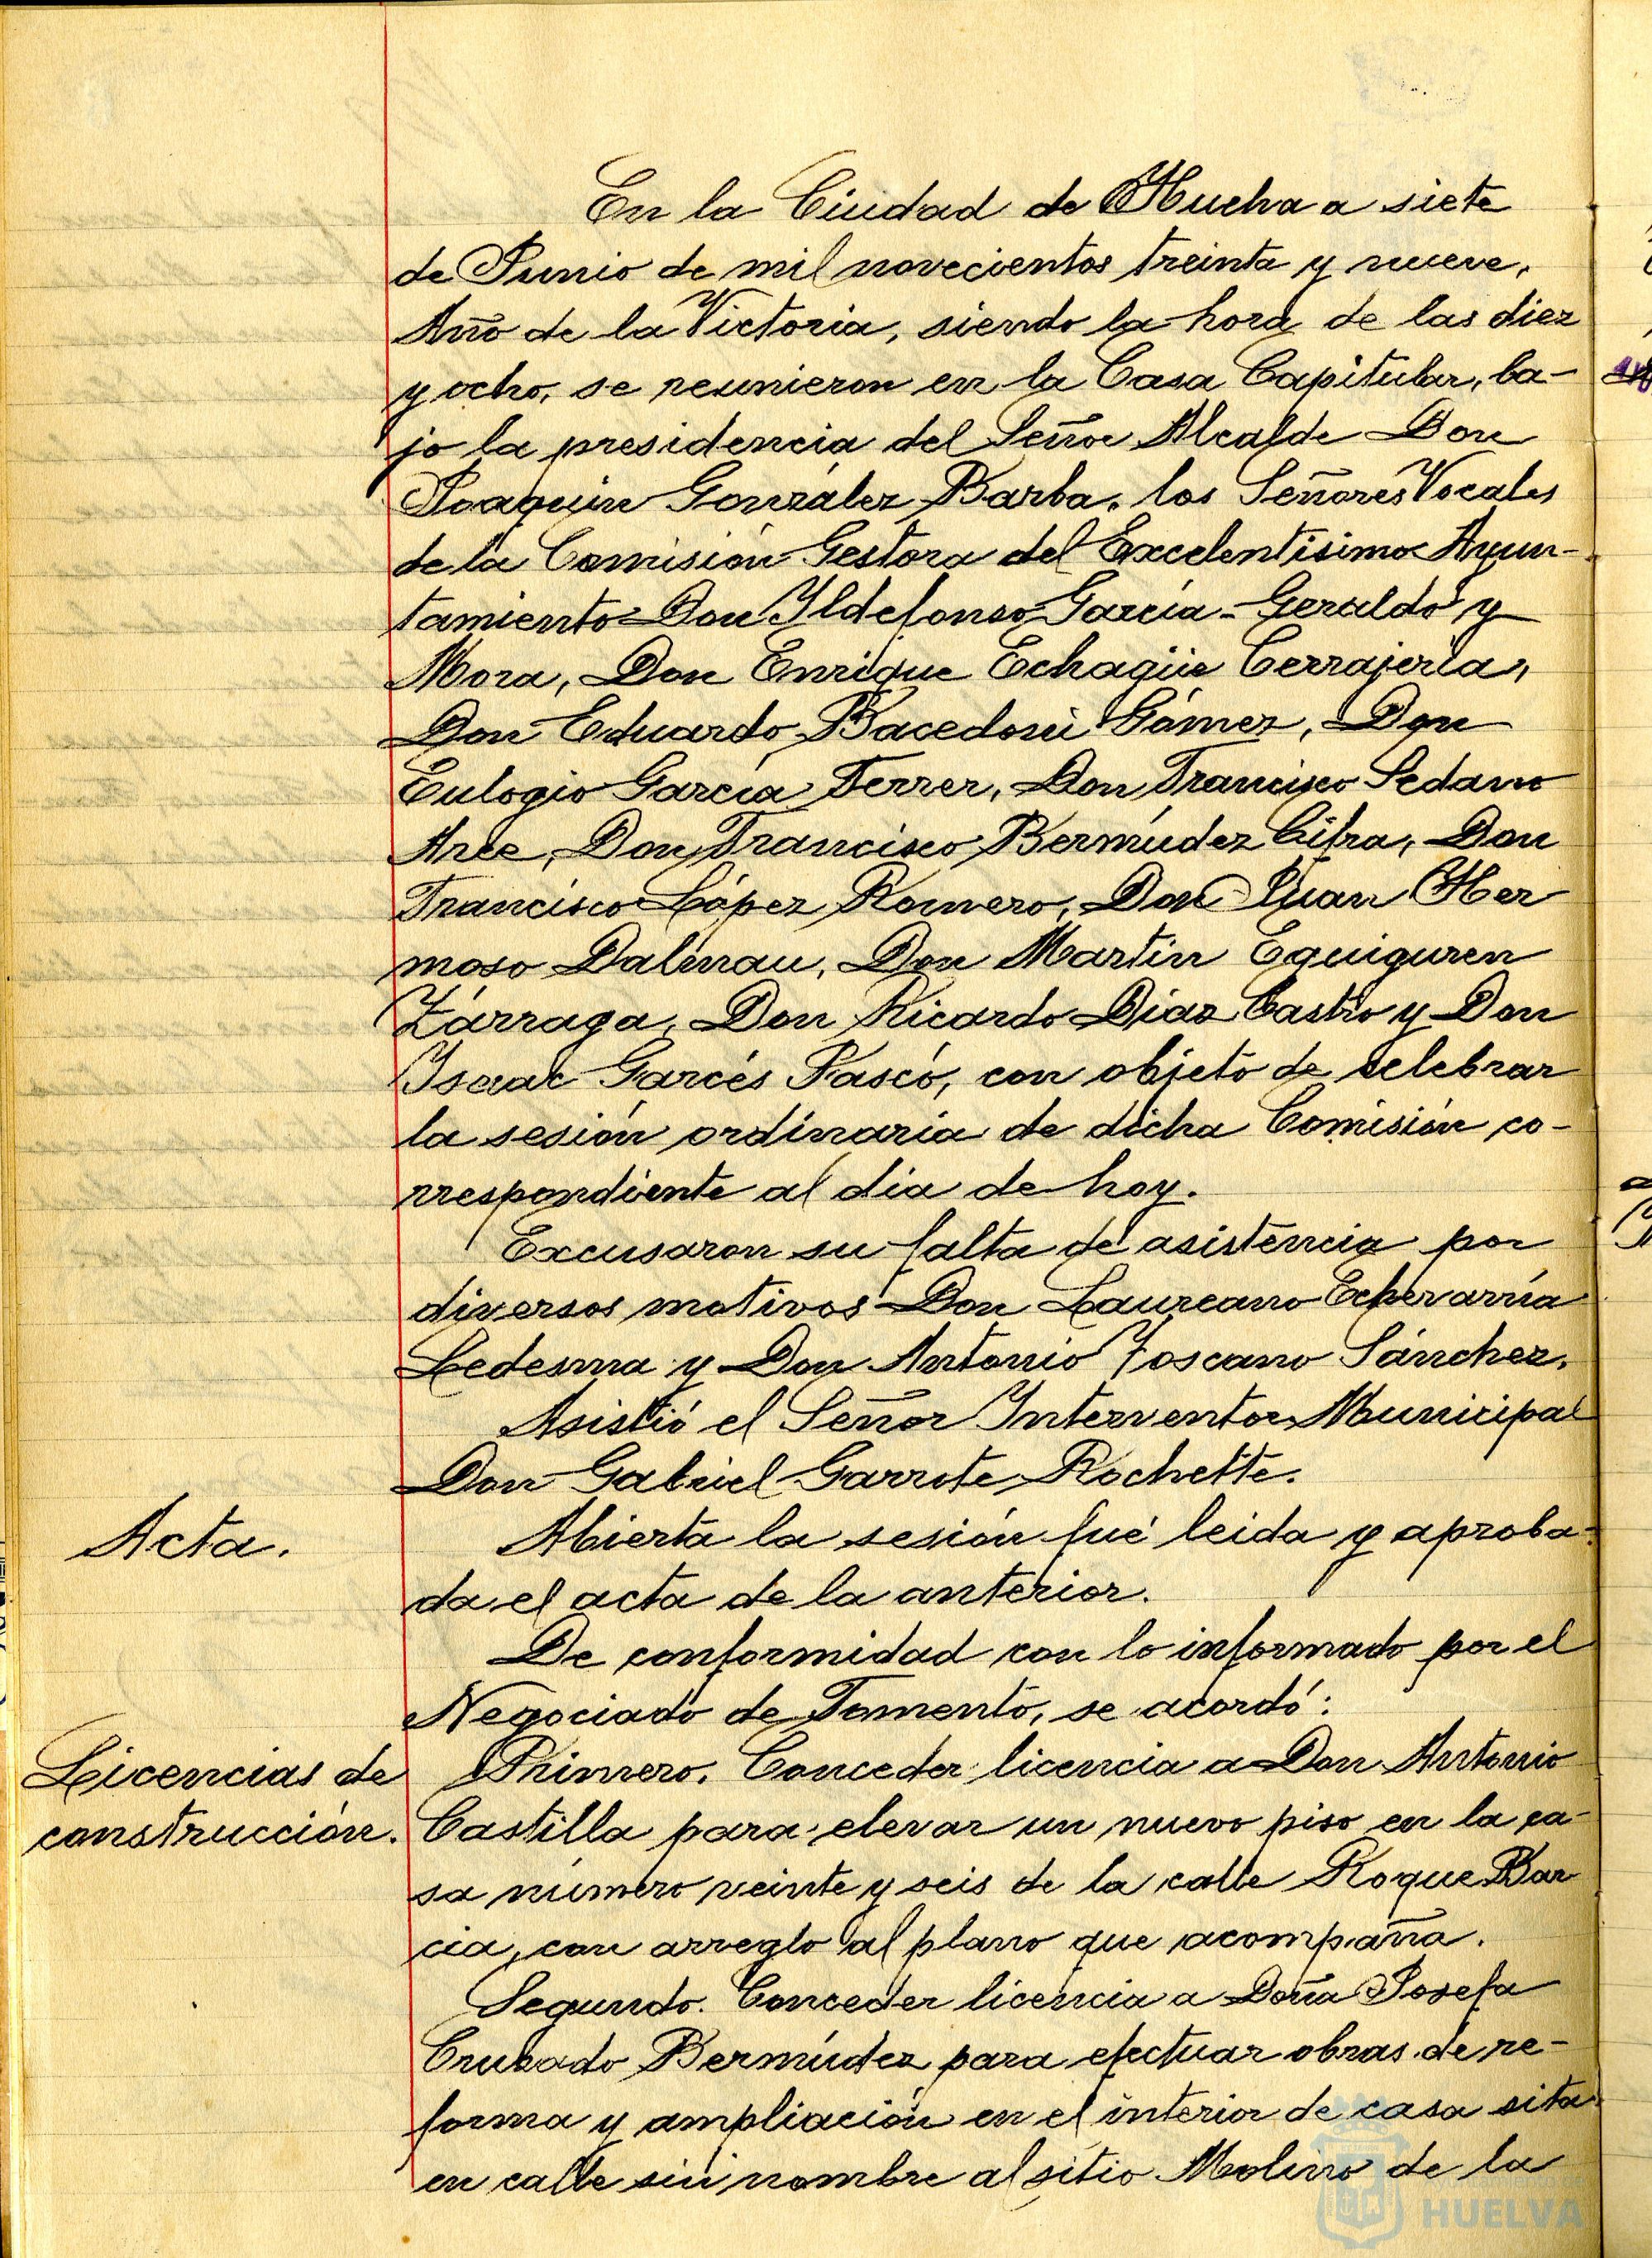 En la Ciudad de Huelva a siete
de Junio de mil novecientos treinta y nueve,
Año de la Victoria, siendo la hora de las diez
y ocho, se reunieron en la Casa Capitular, ba-
jo la presidencia del Señor Alcalde Don
Joaquin González Barba, los Señores Vocales
de la Comisión Gestora del Excelentisimo Ayun-
tamiento Don Yldefonso García-Geraldo y
Mora, Don Enrique Echagüe Cerrajería,
Don Eduardo Bacedoni Gómez, Don
Eulogio García Ferrer, Don Francisco Sedano
Arce, Don Francisco Bermúdez Cifra, Don
Francisco López Romero, Don Juan Her
moso Dalmau, Don Martín Eguiguren
Zárraga, Don Ricardo Díaz Castro y Don
Ysaac Garcés Pascó, con objeto de celebrar
la sesión ordinaria de dicha Comisión co-
rrespondiente al dia de hoy.
Excusaron su falta de asistencia por
diversos motivos Don Laureano Echevarría
Ledesma y Don Antonio Toscano Sánchez.
Asistió el Señor Ynterventor Municipal
Don Gabriel Garrote Rochette.
Acta.
Abierta la sesión fué leida y aproba-
da el acta de la anterior.
De conformidad con lo informado por el
Negociado de Fomento, se acordó:
Licencias de
construcción.
Primero. Conceder licencia a Don Antonio
Castilla para elevar un nuevo piso en la ca-
sa número veinte y seis de la calle Roque Bar
cia, con arreglo al plano que acompaña.
Segundo. Conceder licencia a Doña Josefa
Cruzado Bermúdez para efectuar obras de re-
forma y ampliación en el interior de casa sita
en calle sin nombre al sitio Molino de la
HUELVA